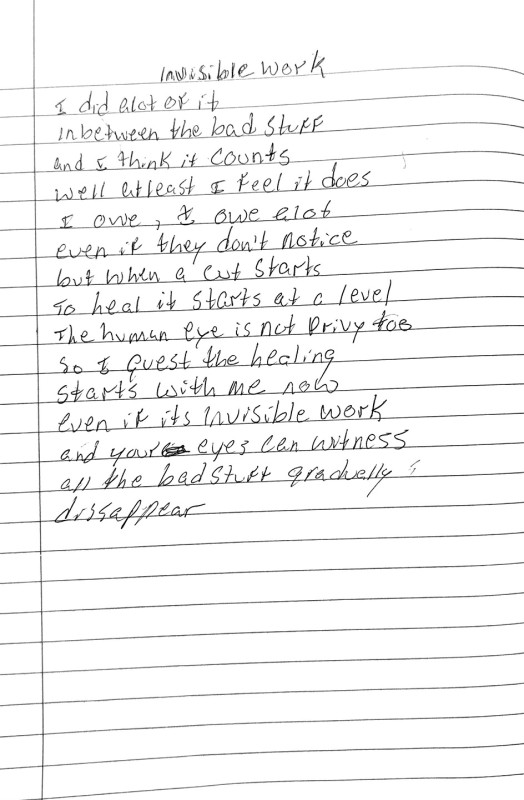 Invisible work
I did alot of it
inbetween the bad stuff
and I think it counts
well atleast I feel it does
I owe, I owe alot
even if they don't notice
but when a cut starts
To heal it starts at a level
The human eye is not privy too
So I guest the healing
starts with me now
even if its invisible work
and your eyes can witness
all the bad stuff gradually
dissappear